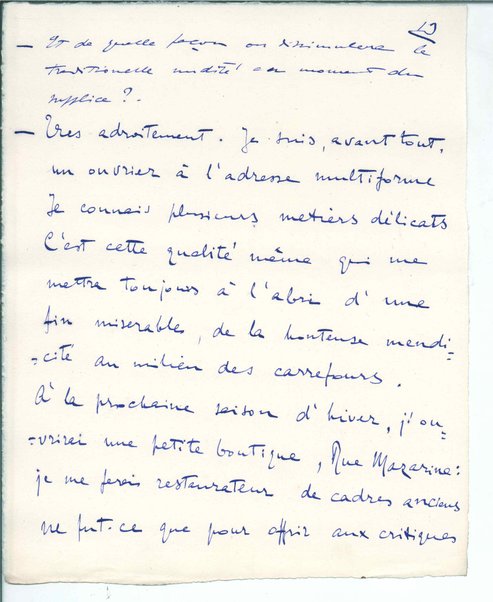 13
— Et de quelle façon on dissimulera la
traditionelle nudité au moment du
supplice ?.
— Tres adroitement. Je suis, avant tout,
un ouvrier à l'adresse multiforme
Je connais plusieurs metiers délicats
C'est cette qualité même qui me
mettra toujours à l'abri d'une
fin miserable, de la honteuse mendi-
-cité au milieu des carrefours.
À la prochaine saison d'hiver, j'ou-
-vrirai une petite boutique, Rue Mazarine :
je me ferais restaurateur de cadres anciens
ne fut-ce que pour offrir aux critiques